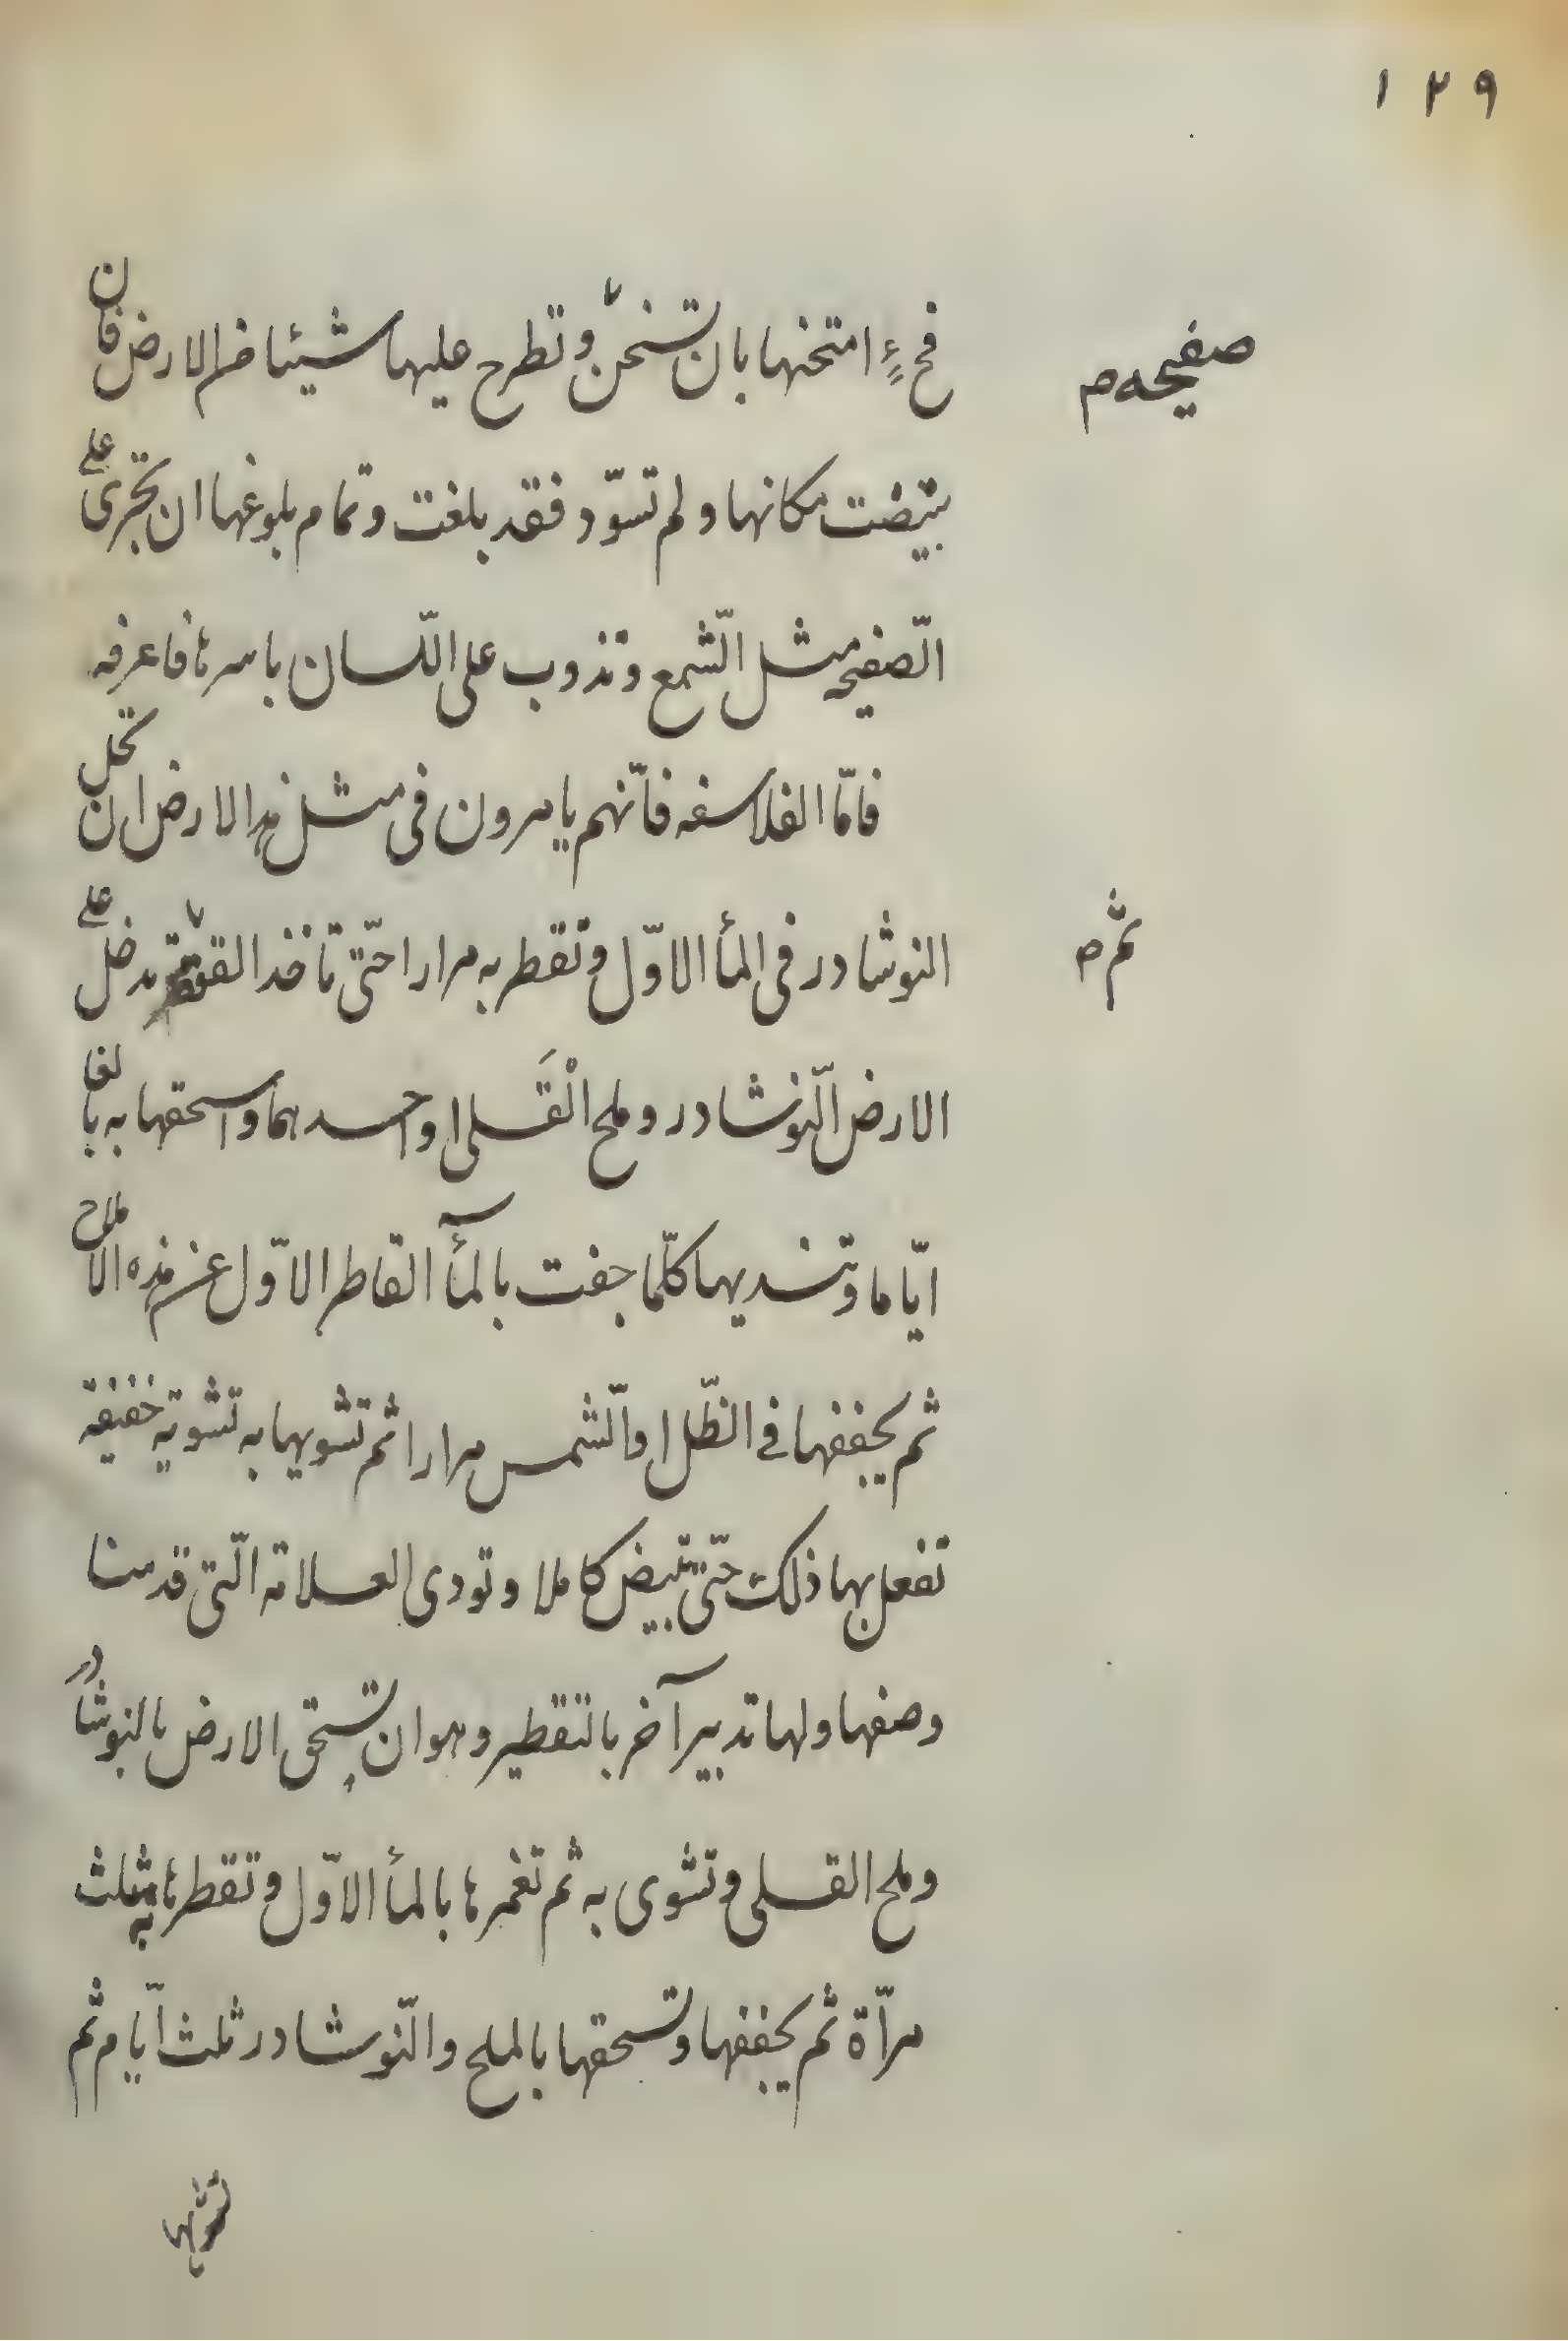 ١٢٩
فحٍ امتحنها بان تسخن وتطرح عليها شيئا من الارض فان
صفيحه م
بتيضت مكانها ولم تسوّد فقد بلغت وتمام بلوغها ان تجرى على
الصّفيحه مثل الشّمع وتذوب على اللّسان باسرها فاعرفه
فامّا الفلاسفه فانّهم يامرون فى مثل هذه الارض ان تحل
النوشادر فى المأ الاوّل وتقطر به مرارا حتّى تاخذ القوة تدخل على
ثم ص
الارض النّوشادر وملح القَلى او احدهما واسحقها به بالغا
ايّاما وتنديها كلّما جفت بالمآ القاطر الاوّل عن هذه الاملاح
ثم يجففها فى الظّل او الشّمس مرارا ثم تشويها به تشوية خفيفة
تفعل بها ذلك حتّى تبيض كاملا وتودى العلامة الّتى قدمنا
وصفها ولها تدبير آخر بالتقطير وهو ان تسحق الارض بالنوشادر
وملح القلى وتشوى به ثم تغمرها بالمأ الاوّل وتقطرها به ثلث
مرّاة ثم يجففها وتسحقها بالملح والنّوشادر ثلث ايّام ثم
تشويها